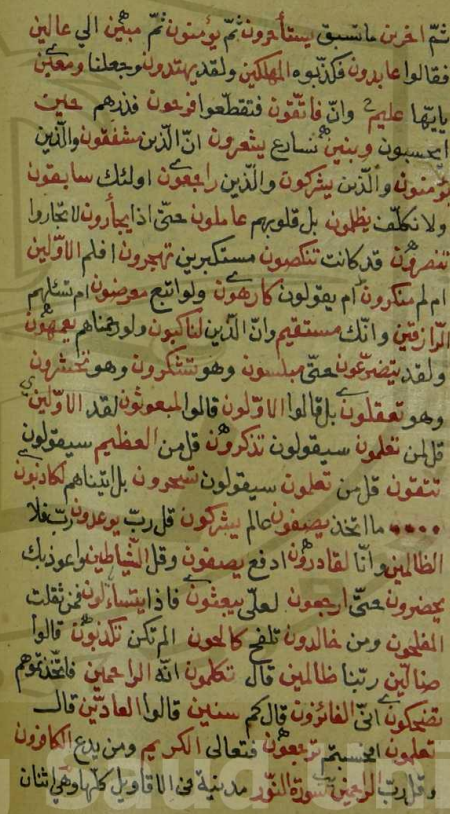 ثمّ اخرين ماتسبق يستأخرون ثمّ يؤمنون ثمّ مبين الي عالين
فقالوا عابدون فكذّبوه المهلكين ولقد يهتدون وجعلنا ومعين
يايّها عليم وانّ فاتّقون فتقطّعوا فرحون فذرهم حين
ايحسبون وبنين نسارع يشعرون انّ الّذين مشفقون والّذين
يؤمنون والّذين يشركون والّذين راجعون اولئك سابقون
ولانكلّف يظلمون بل قلوبهم عاملون حتّى اذا يجأرون لاتجاروا
تنصرون قدكانت تنكصون مستكبرين تهجرون افلم الاوّلين
ام لم منكرون ام يقولون كارهون ولو اتبع معرضون ام تسئلهم
الرّازقين وانّك مستقيم وانّ الّذين لناكبون ولورحمناهم يعمهون
ولقد يتضرّعون حتّى مبلسون وهو تشكرون وهو تحشرون
وهو تعقلون بل قالوا الاوّلون قالوا لمبعوثون لقد الاوّلين
قل لمن تعلمون سيقولون تذكرون قل من العظيم سيقولون
تتقون قل من تعلمون سيقولون تسحرون بل اتيناهم لكاذبون
ما اتخذ يصفون عالم يشركون قل ربّ يوعدون ربّ فلا
الظالمين وانّا لقادرون ادفع يصفون وقل الشّياطين واعوذ بك
يحضرون حتّى ارجعون لعلّي يبعثون فاذا يتساءلون فمن ثقلت
المفلحون ومن خالدون تلفح كالحون الم تكن تكذبون قالوا
ضالّين ربّنا ظالمين قال تكلمون انّه الراحمين فاتّخذتموهم
تضحكون انّي الفائزون قال كم سنين قالوا العادّين قال
تعلمون افحسبتم ترجعون فتعالى الكريم ومن يدع الكافرون
وقل ربّ الراحمين سورة النّور مدنية في الاقاويل كلّها وهي اثنان